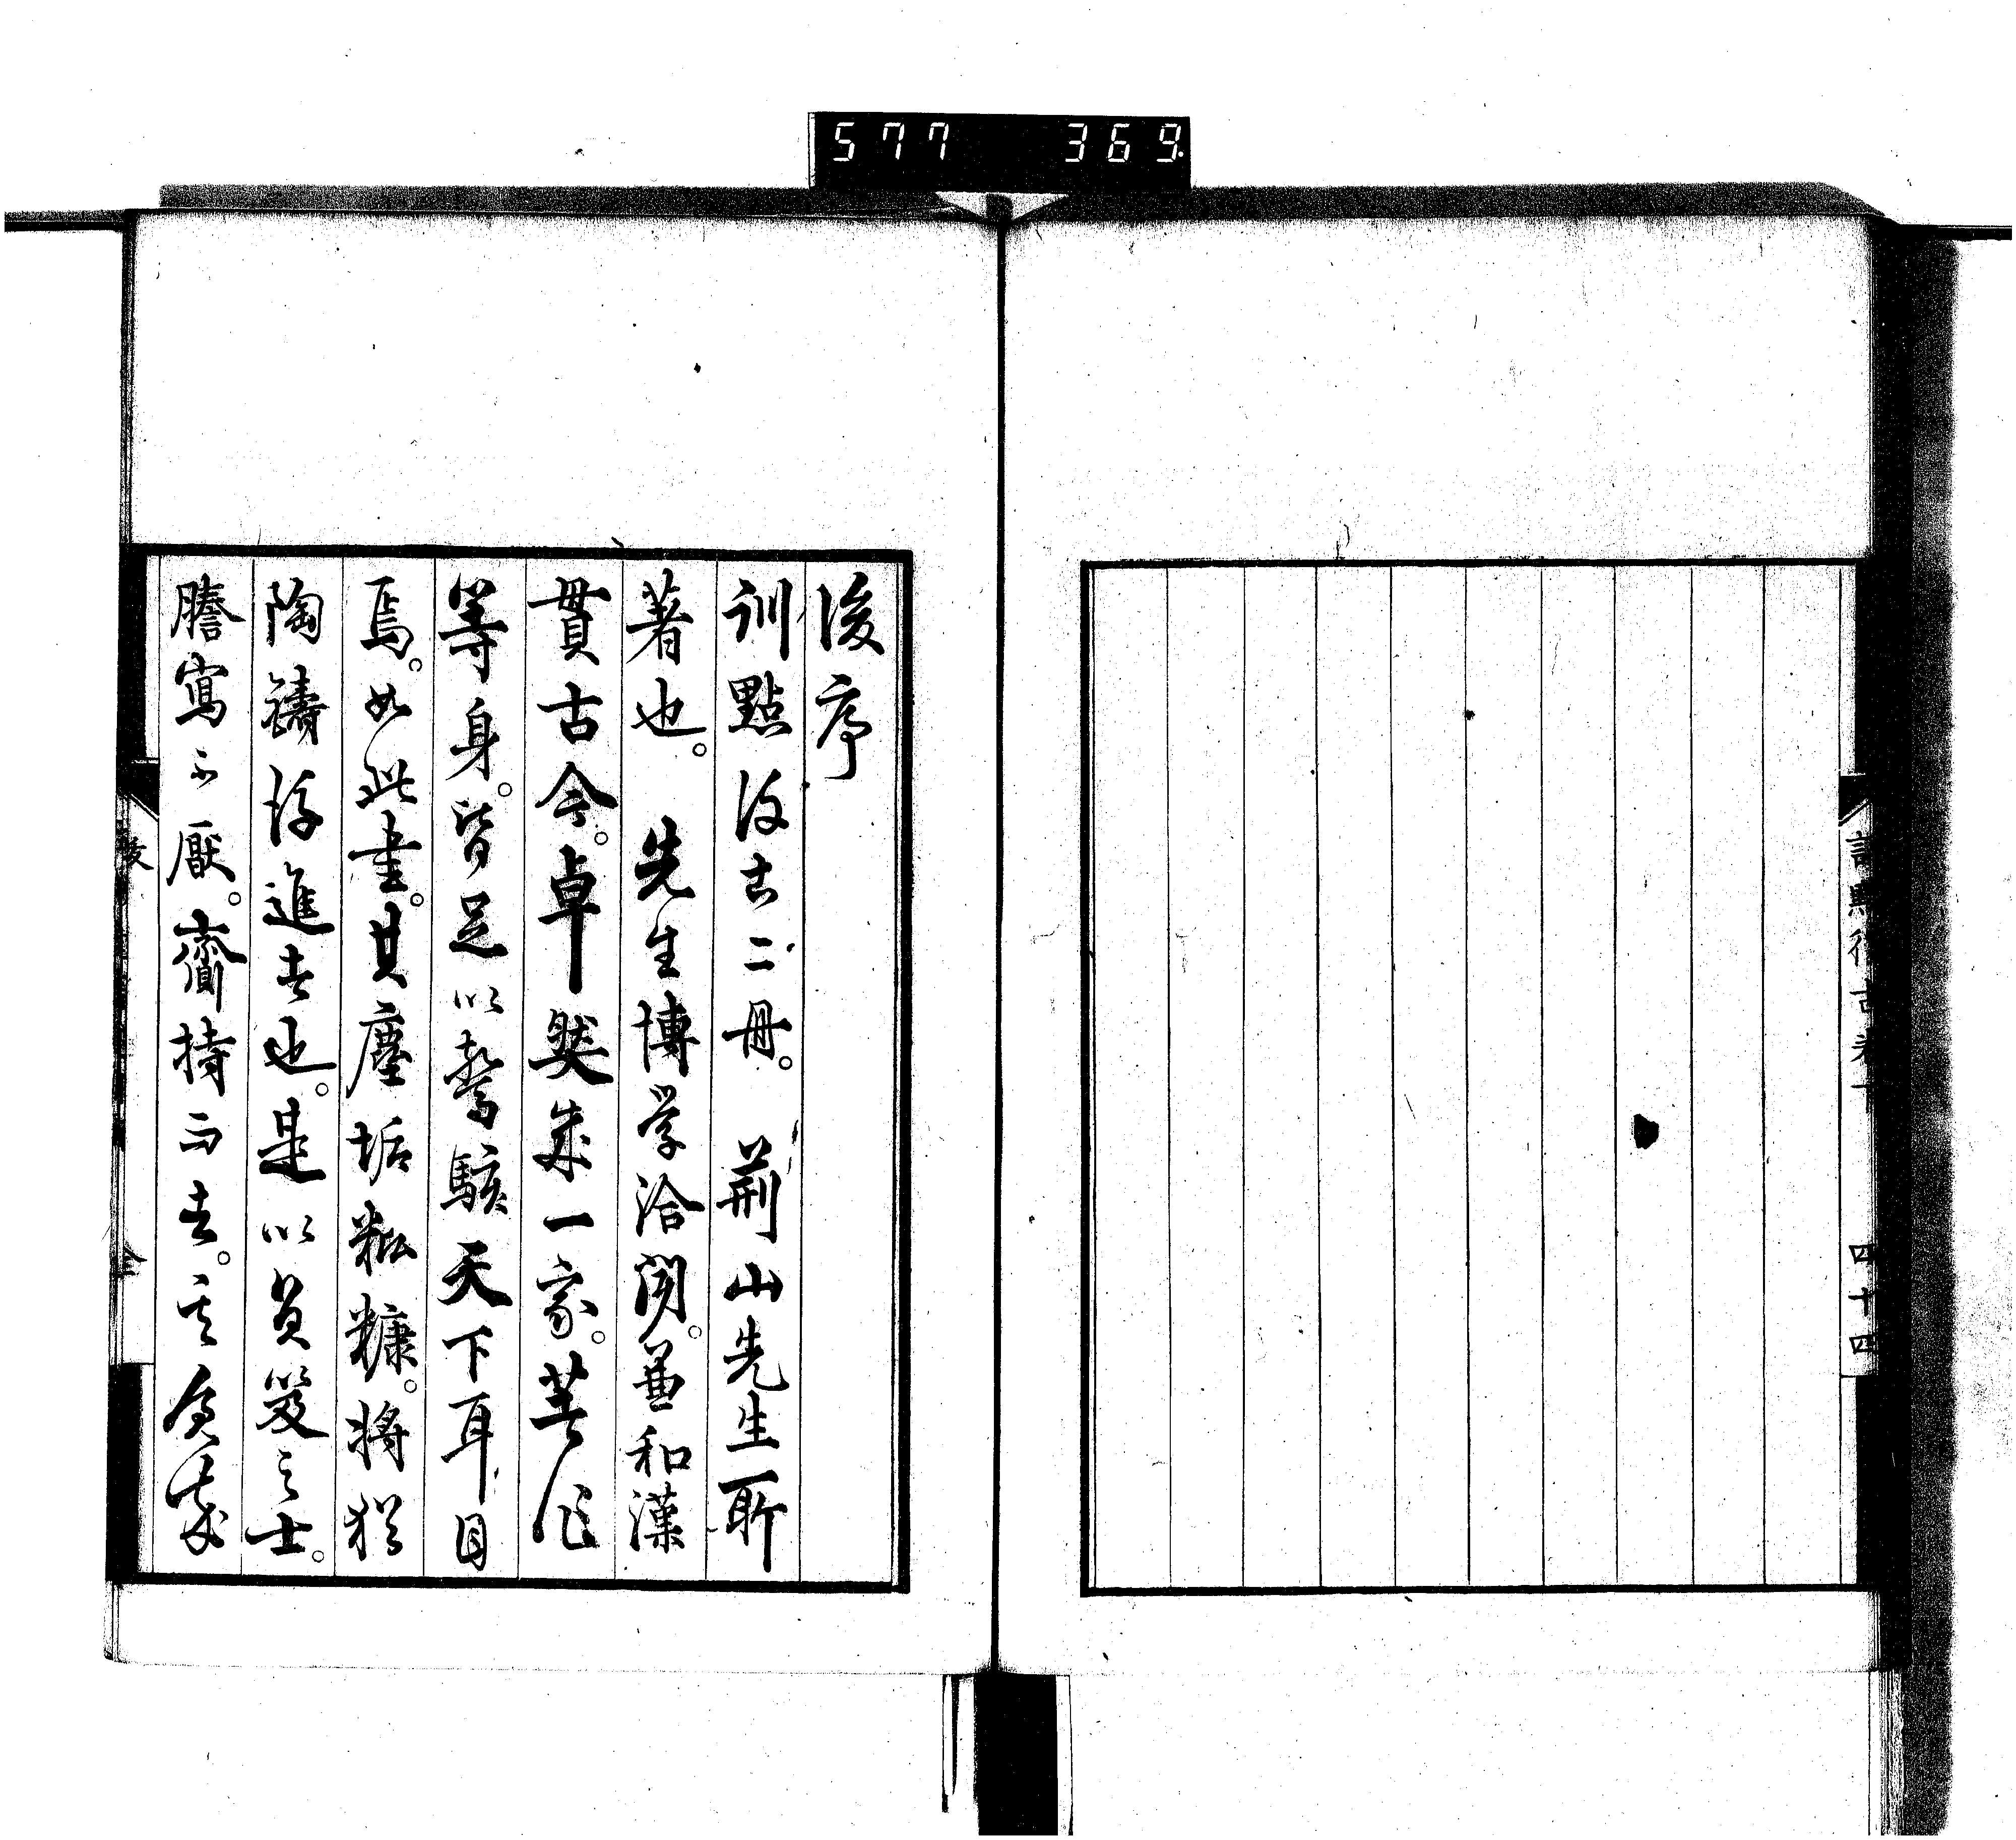 577 369
訓點復古卷下 四十四
後序
訓點復古二冊。荊山先生所
著也。先生博学洽聞。兼和漢
貫古今。卓然成一家。著作
等身。皆足以驚駭天下耳目
焉。如此書。其塵垢粃糠。將猶
陶鑄後進者也。是以負笈之士。
謄寫不厭。齎持而去。
後 全